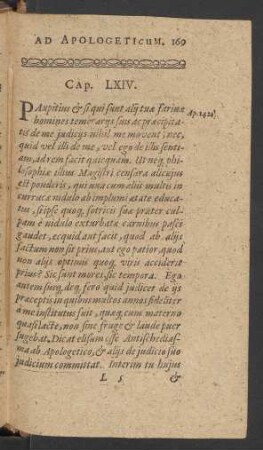 AD APOLOGETICUM. 169
CAP. LXIV.
PAupitius & si qui sunt alij tuæ farinæ
homines temerarijs suis ac præcipita-
tis de me judicijs nihil me movent; nec,
quid vel illi de me, vel ego de illis senti-
am, ad rem facit quicquam. Ut neq, phi-
losophiæ illius Magistri censura alicujus
est ponderis, qui una cum alijs multis in
curracæ nidulo ab implumi ætate educa-
tus, seipse quoq, sotricis suæ præter cul-
pam è nidulo exturbatæ carnibus pasci
gaudet, ecquid aut facit, quod ab alijs
factum non sit prius, aut ego patior, quod
non alijs optimis quoq, viris acciderit
prius? Sic sunt mores, sic tempora. Ego
autem sus, deq, fero quid judicet de ijs
præceptis in quibus multos annos fideliter
à me institutus fuit, quæq, cum materno
quasi lacte, non sine fruge & laude puer
sugebat. Dicat elisum esse Antischedias-
ma ab Apologetico, & alijs de judicio suo
judicium committat. Interim tu hujus
L 5 &
Ap. 142.